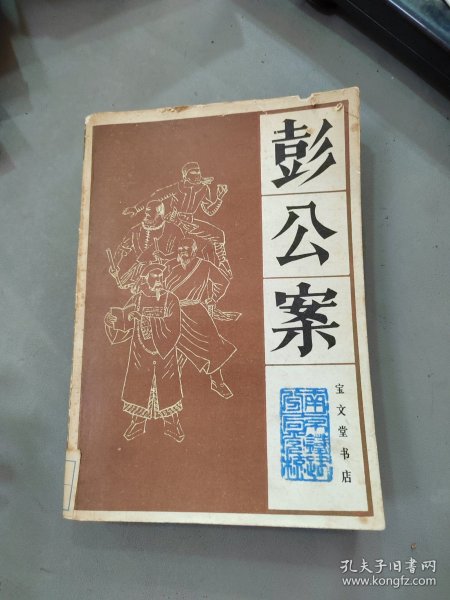 彭公案
宝文堂书店
孔夫子旧书网
www.kongfz.com